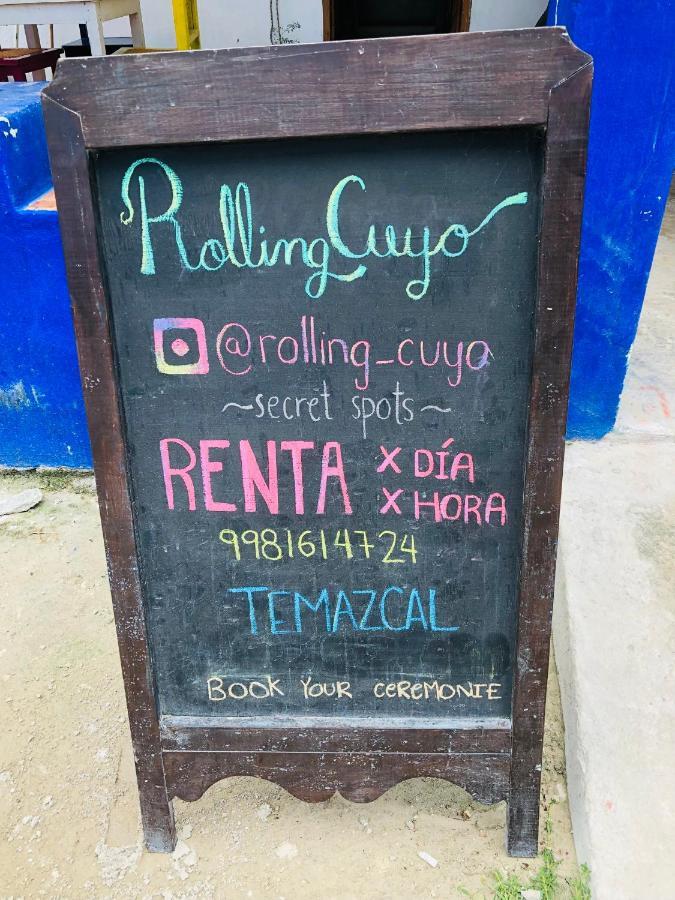 Rolling Cuyo
@rolling_cuyo
~secret spots~
RENTA x DÍA
x HORA
9981614724
TEMAZCAL
BOOK YOUR CEREMONIE